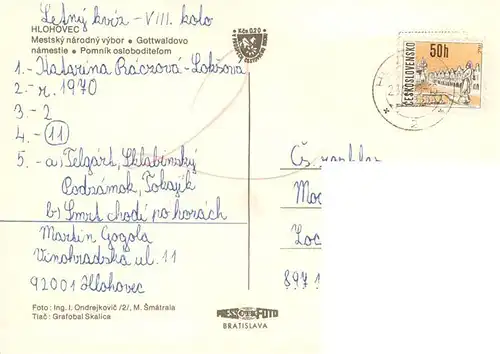 Letný kvíz - VIII. kolo
HLOHOVEC
Mestský národný výbor • Gottwaldovo
námestie • Pomník osloboditeľom
Kčs 0,20
50h
ČESKOSLOVENSKO
1.- Katarína Ráczová-Lokšova
2.- r. 1970
3.- 2
4.- 11
5.- a, Telgart, Sklabinský
Podzámok, Tokajík
b, Smrt chodí po horách
Martin Gogola
Vinohradská ul. 11
92001 Hlohovec
Mo
Loc
897 1
Foto: Ing. I. Ondrejkovič /2/, M. Šmátrala
Tlač: Grafobal Skalica
PRESSFOTO
BRATISLAVA